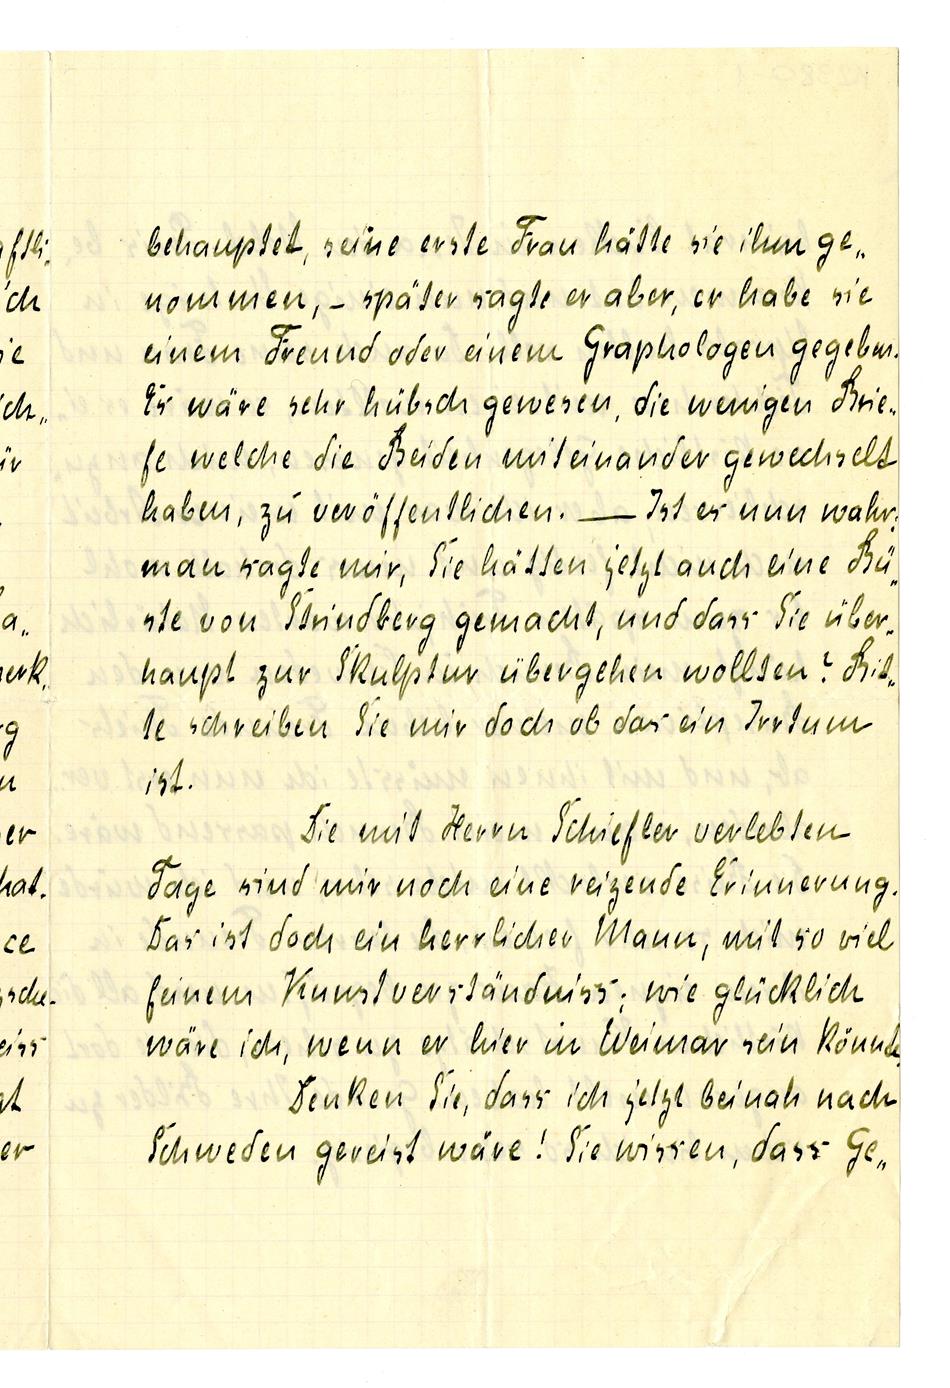 behauptet, seine erste Frau hätte sie ihm ge„
nommen, – später sagte er aber, er habe sie
einem Freund oder einem Graphologen gegeben.
Es wäre sehr hübsch gewesen, die wenigen Brie„
fe welche die Beiden miteinander gewechselt
haben, zu veröffentlichen. — Ist es nun wahr,
man sagte mir, Sie hätten jetzt auch eine Bü„
ste von Strindberg gemacht, und dass Sie über„
haupt zur Skulptur übergehen wollten? Bit„
te schreiben Sie mir doch ob das ein Irrtum
ist.
Die mit Herrn Schiefler verlebten
Tage sind mir noch eine reizende Erinnerung.
Das ist doch ein herrlicher Mann, mit so viel
feinem Kunstverständniss; wie glücklich
wäre ich, wenn er hier in Weimar sein könnte.
Denken Sie, dass ich jetzt beinah nach
Schweden gereist wäre! Sie wissen, dass Ge„